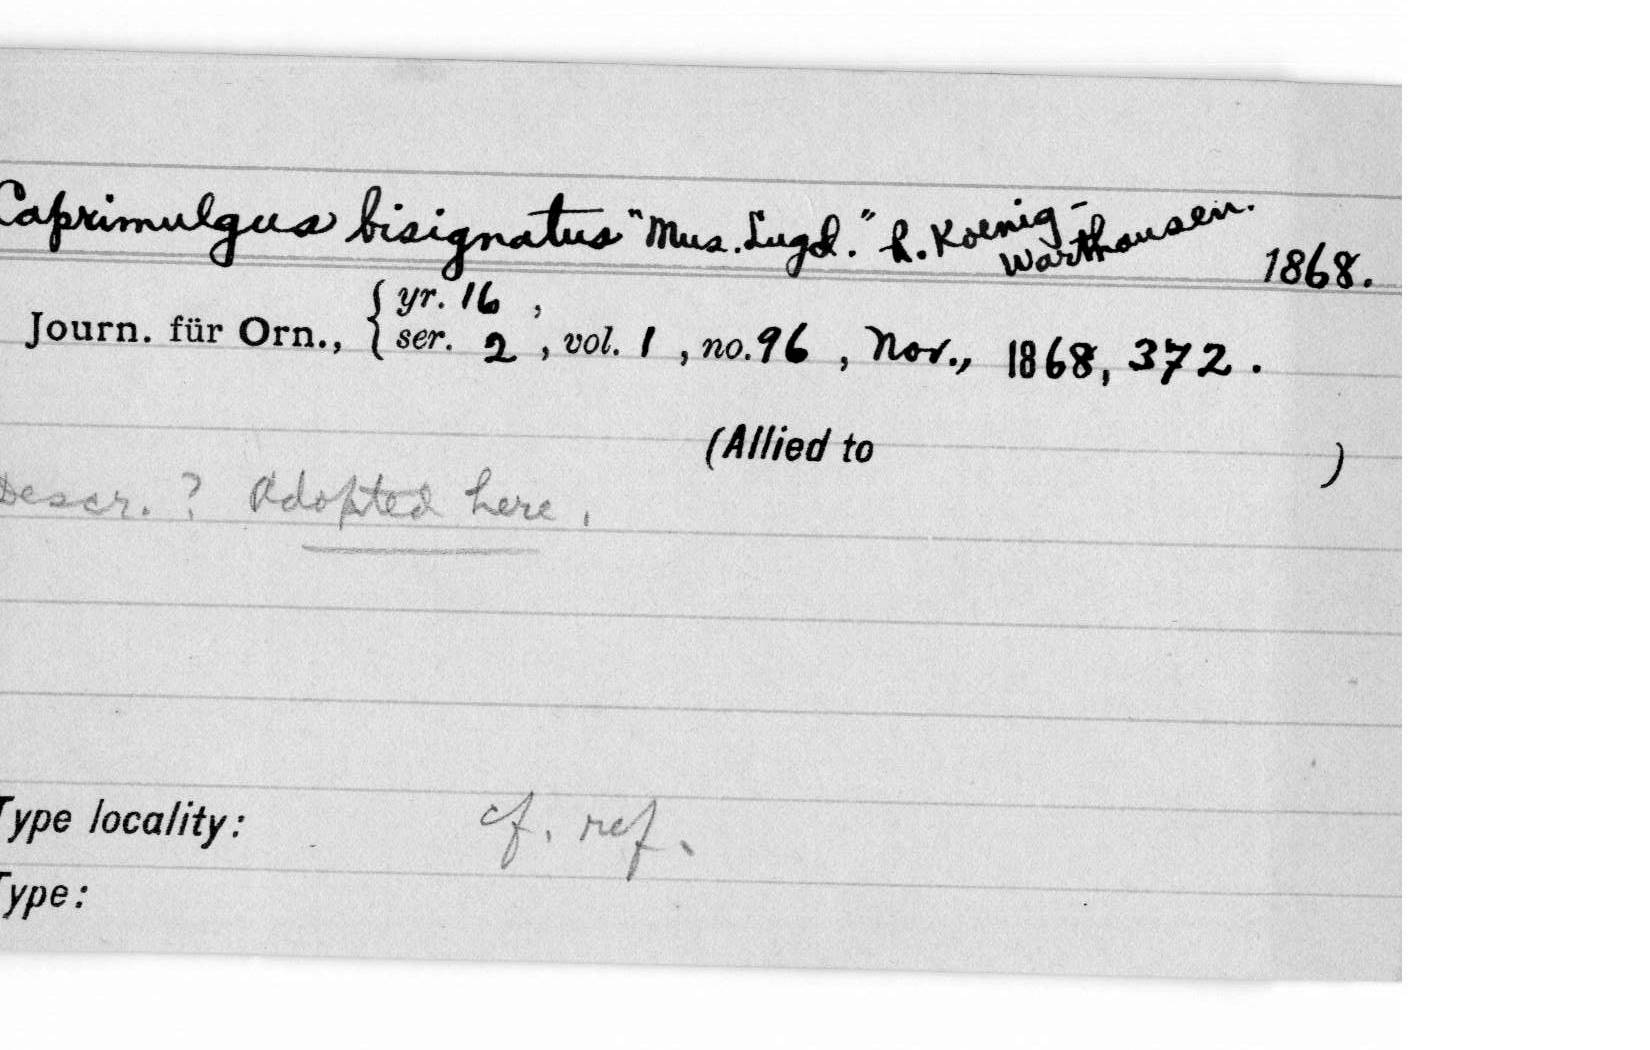 Caprimulgus bisignatus "Mus. Lugd." h. Koenig-
Warthausen. 1868.
yr. 16 ,
Journ. für Orn., { ser. 2 , vol. 1 , no. 96 , Nov., 1868, 372 .
(Allied to )
Descr. ? Adopted here .
Type locality: cf. ref.
Type: